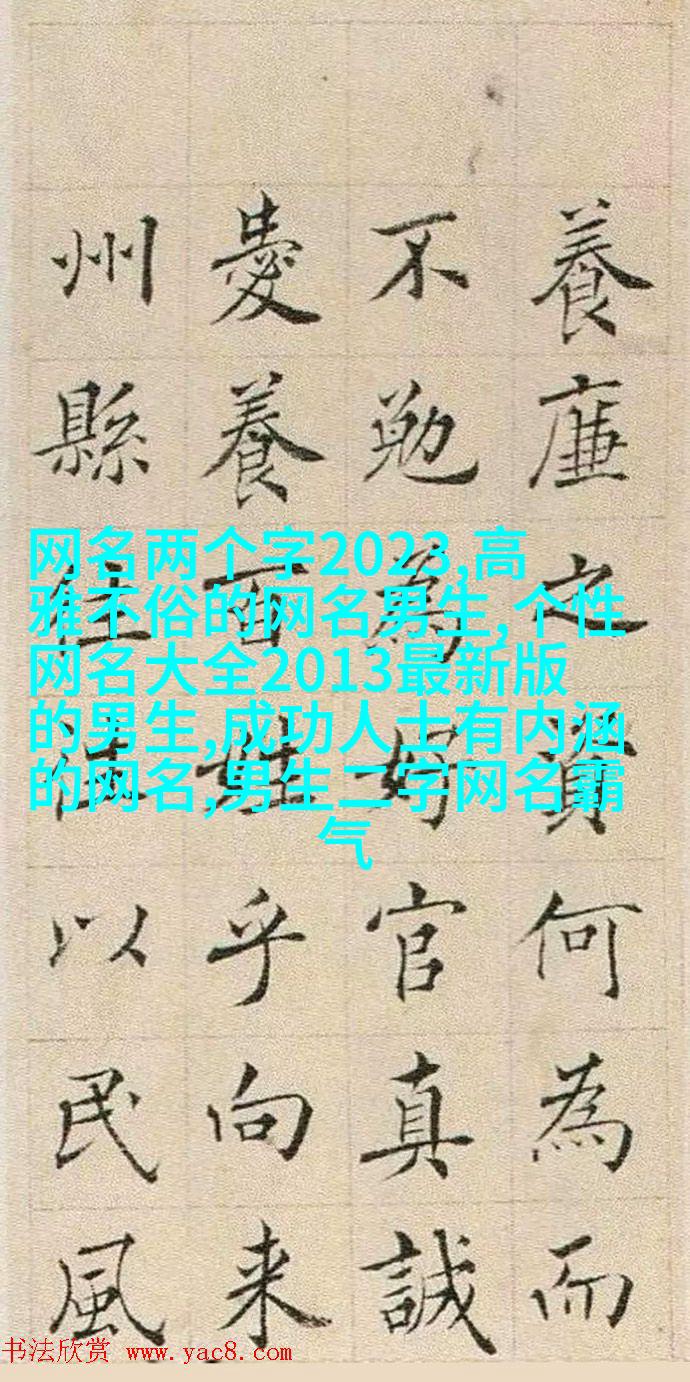 養廉之資何為而
不勉為好官真誠
愛養百姓乎向来
州縣以民風
网名两个字2023,高
雅不俗的网名男生,个性
网名大全2013最新版
的男生,成功人士有内涵
的网名,男生二字网名霸
气
书法欣赏 www.yac8.com